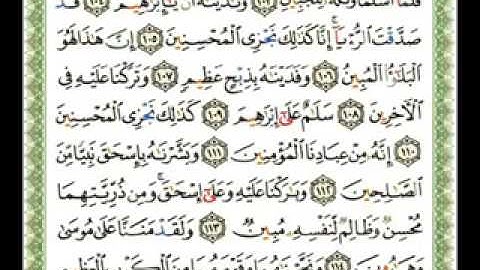 فَلَمَّا أَسْلَمَا وَتَلَّهُۥ لِلْجَبِينِ ١٠٣ وَنَٰدَيْنَٰهُ أَن يَٰٓإِبْرَٰهِيمُ ١٠٤ قَدْ
صَدَّقْتَ ٱلرُّءْيَآ ۚ إِنَّا كَذَٰلِكَ نَجْزِى ٱلْمُحْسِنِينَ ١٠٥ إِنَّ هَٰذَا لَهُوَ
ٱلْبَلَٰٓؤُا۟ ٱلْمُبِينُ ١٠٦ وَفَدَيْنَٰهُ بِذِبْحٍ عَظِيمٍ ١٠٧ وَتَرَكْنَا عَلَيْهِ فِى
ٱلْءَاخِرِينَ ١٠٨ سَلَٰمٌ عَلَىٰٓ إِبْرَٰهِيمَ ١٠٩ كَذَٰلِكَ نَجْزِى ٱلْمُحْسِنِينَ
١١٠ إِنَّهُۥ مِنْ عِبَادِنَا ٱلْمُؤْمِنِينَ ١١١ وَبَشَّرْنَٰهُ بِإِسْحَٰقَ نَبِيًّا مِّنَ
ٱلصَّٰلِحِينَ ١١٢ وَبَٰرَكْنَا عَلَيْهِ وَعَلَىٰٓ إِسْحَٰقَ ۚ وَمِن ذُرِّيَّتِهِمَا
مُحْسِنٌ وَظَالِمٌ لِّنَفْسِهِۦ مُبِينٌ ١١٣ وَلَقَدْ مَنَنَّا عَلَىٰ مُوسَىٰ
وَهَٰرُونَ ١١٤ وَنَجَّيْنَٰهُمَا وَقَوْمَهُمَا مِنَ ٱلْكَرْبِ ٱلْعَظِيمِ